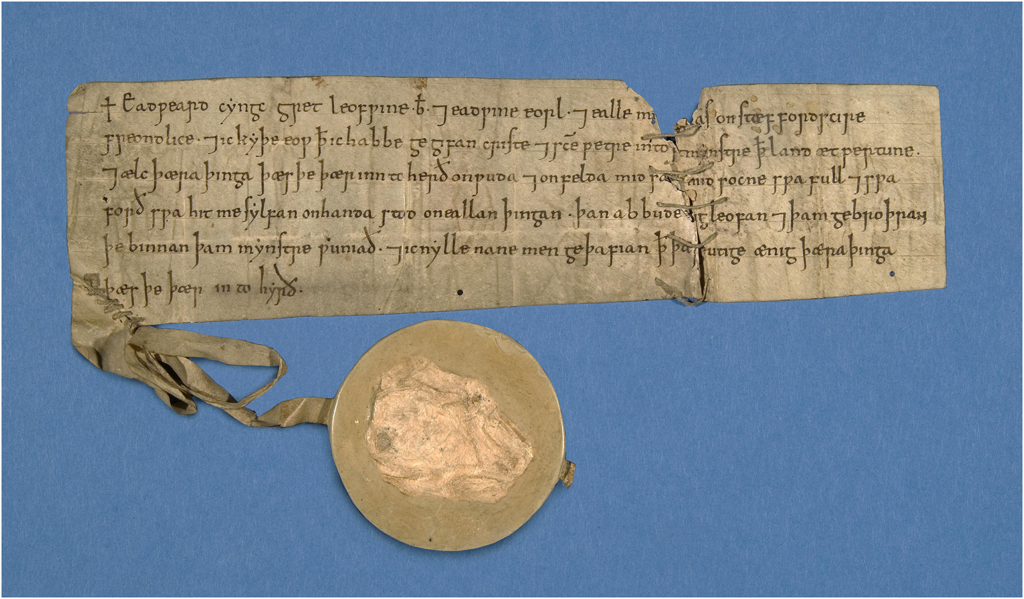 ✝ Eadƿeard cyngc gret leofƿine ·b̄· ⁊ eadƿine eorl · ⁊ ealle mi as on stæffordscire
freondlice · ⁊ ic kyþe eoƿ ꝥ ic habbe gegyfan criste ⁊ sc̄e petre into mynstre ꝥ land æt pertune ·
⁊ ælc þæra þinga þæs þe þær inn to herð on ƿuda ⁊ on felda mid sa mid socne sƿa full ⁊ sƿa
forð sƿa hit me sylfan on handa stod on eallan þingan · þan abbude leofan ⁊ þam gebroþran
þe binnan þam mynstre ƿuniað · ⁊ ic nylle nane men geþafian ꝥ utige ænig þæra þinga
þæs þe þær in to hyrð ·